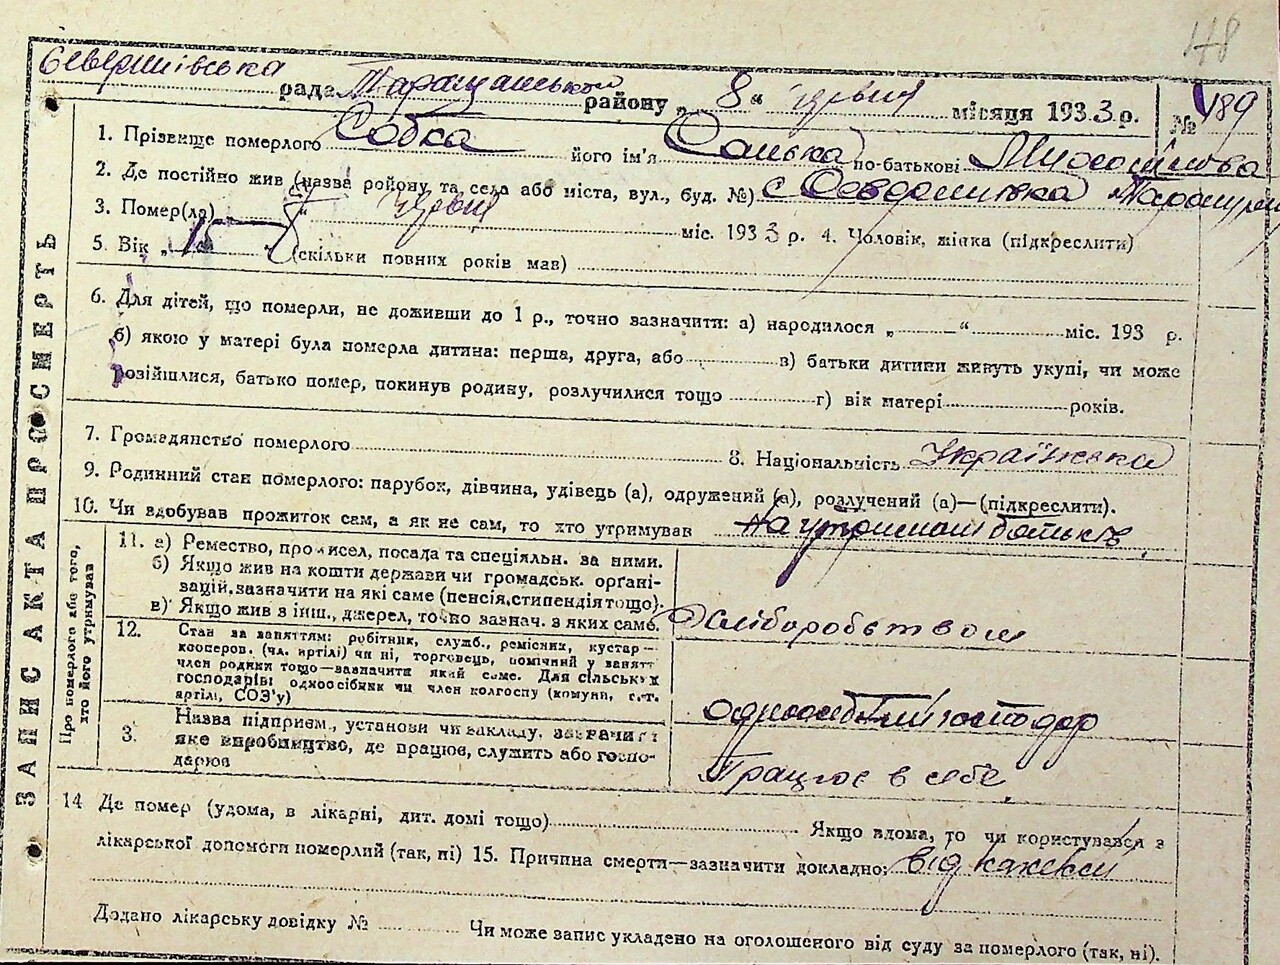 148
Северинівська рада Таращанського району „ 8 “ червня місяця 1933 р. № 189
1. Прізвище померлого Собка його ім'я Санька по-батькові
2. Де постійно жив (назва ройону, та села або міста, вул., буд. №) с Северинівка
3. Помер(ла) „ 8 “ червня міс. 1933 р. 4. Чоловік, жінка (підкреслити)
5. Вік „ 15 (скільки повних років мав)
6. Для дітей, що померли, не доживши до 1 р., точно зазначити: а) народилося „ “ міс. 193 р.
б) якою у матері була померла дитина: перша, друга, або в) батьки дитини живуть укупі, чи може
розійшлися, батько помер, покинув родину, розлучилися тощо г) вік матері років.
7. Громадянство померлого 8. Національність Українська
9. Родинний стан померлого: парубок, дівчина, удівець (а), одружений (а), розлучений (а)—(підкреслити).
10. Чи здобував прожиток сам, а як не сам, то хто утримував На утриман батьків
ЗАПИС АКТА ПРО СМЕРТЬ
Про померлого або того,
хто його утримував
11. а) Ремество, промисел, посада та спеціяльн. за ними.
б) Якщо жив на кошти держави чи громадськ. орґані-
зацій, зазначити на які саме (пенсія, стипендія тощо).
в) Якщо жив з інш., джерел, точно зазнач. з яких саме. Хліборобством
12. Стан за заняттям: робітник, служб., ремісник, кустар—
кооперов. (чл. артілі) чи ні, торговець, помічний у занятт
член родини тощо—зазначити який саме. Для сільських
господарів: одноосібник чи член колгоспу (комуни, с.-г.
артілі, СОЗ'у) одноосібний господар
3. Назва підприєм., установи чи закладу, зазначити
яке виробництво, де працює, служить або госпо-
дарює Працює в себе
14 Де помер (удома, в лікарні, дит. домі тощо) Якщо вдома, то чи користувався з
лікарської допомоги померлий (так, ні) 15. Причина смерти—зазначити докладно: Від кахексії
Додано лікарську довідку № Чи може запис укладено на оголошеного від суду за померлого (так, ні).